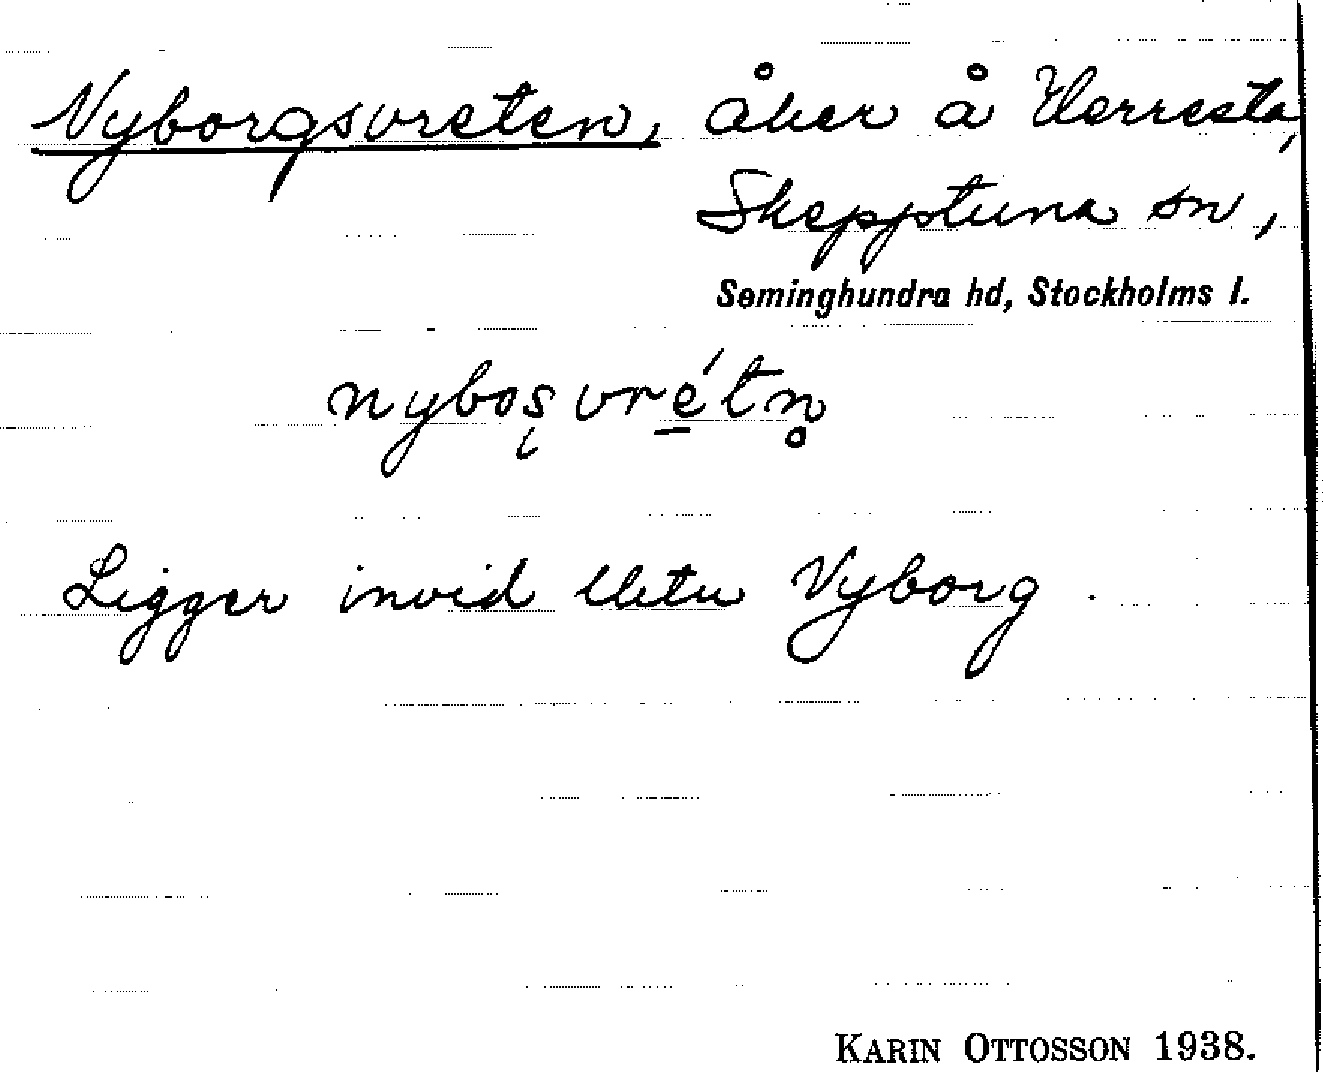 Nyborgsvreten, åker å Herresta,
Skepptuna sn,
Seminghundra hd, Stockholms l.
nybos̨vré̱tn̥
Ligger invid Nyborg.
KARIN OTTOSSON 1938.